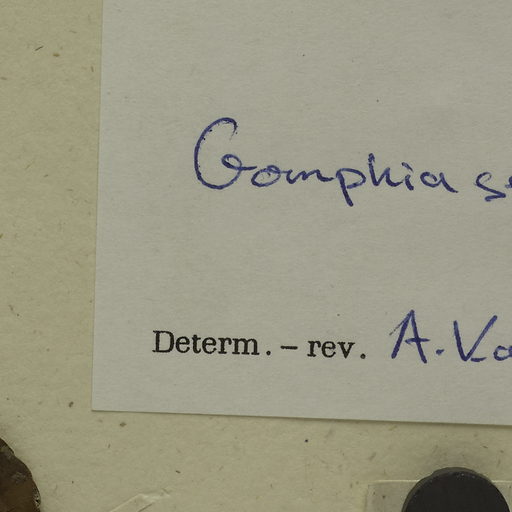 Gomphia
Determ. – rev. A.